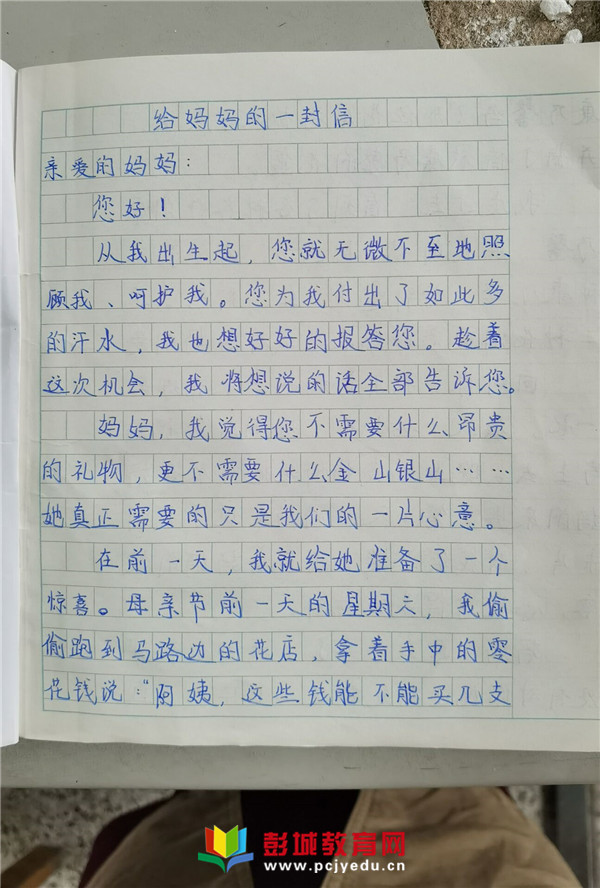 给妈妈的一封信
亲爱的妈妈：
您好！
从我出生起，您就无微不至地照
顾我、呵护我。您为我付出了如此多
的汗水，我也想好好的报答您。趁着
这次机会，我将想说的话全部告诉您。
妈妈，我觉得您不需要什么昂贵
的礼物，更不需要什么金山银山……
她真正需要的只是我们的一片心意。
在前一天，我就给她准备了一个
惊喜。母亲节前一天的星期六，我偷
偷跑到马路边的花店，拿着手中的零
花钱说：“阿姨，这些钱能不能买几支
彭城教育网
www.pcjyedu.cn